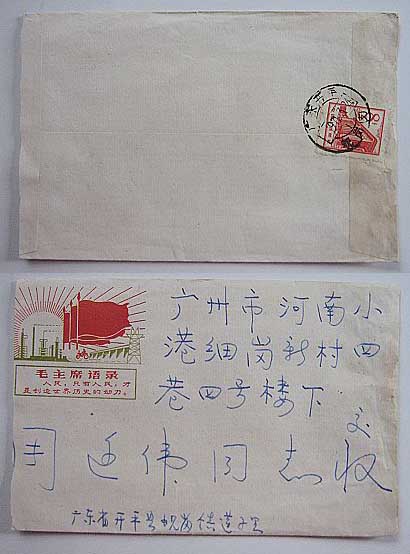 8
毛主席语录
人民，只有人民，才
是创造世界历史的动力。
广州市河南小
港细岗新村四
巷四号楼下
交
周廷伟同志收
广东省开平县